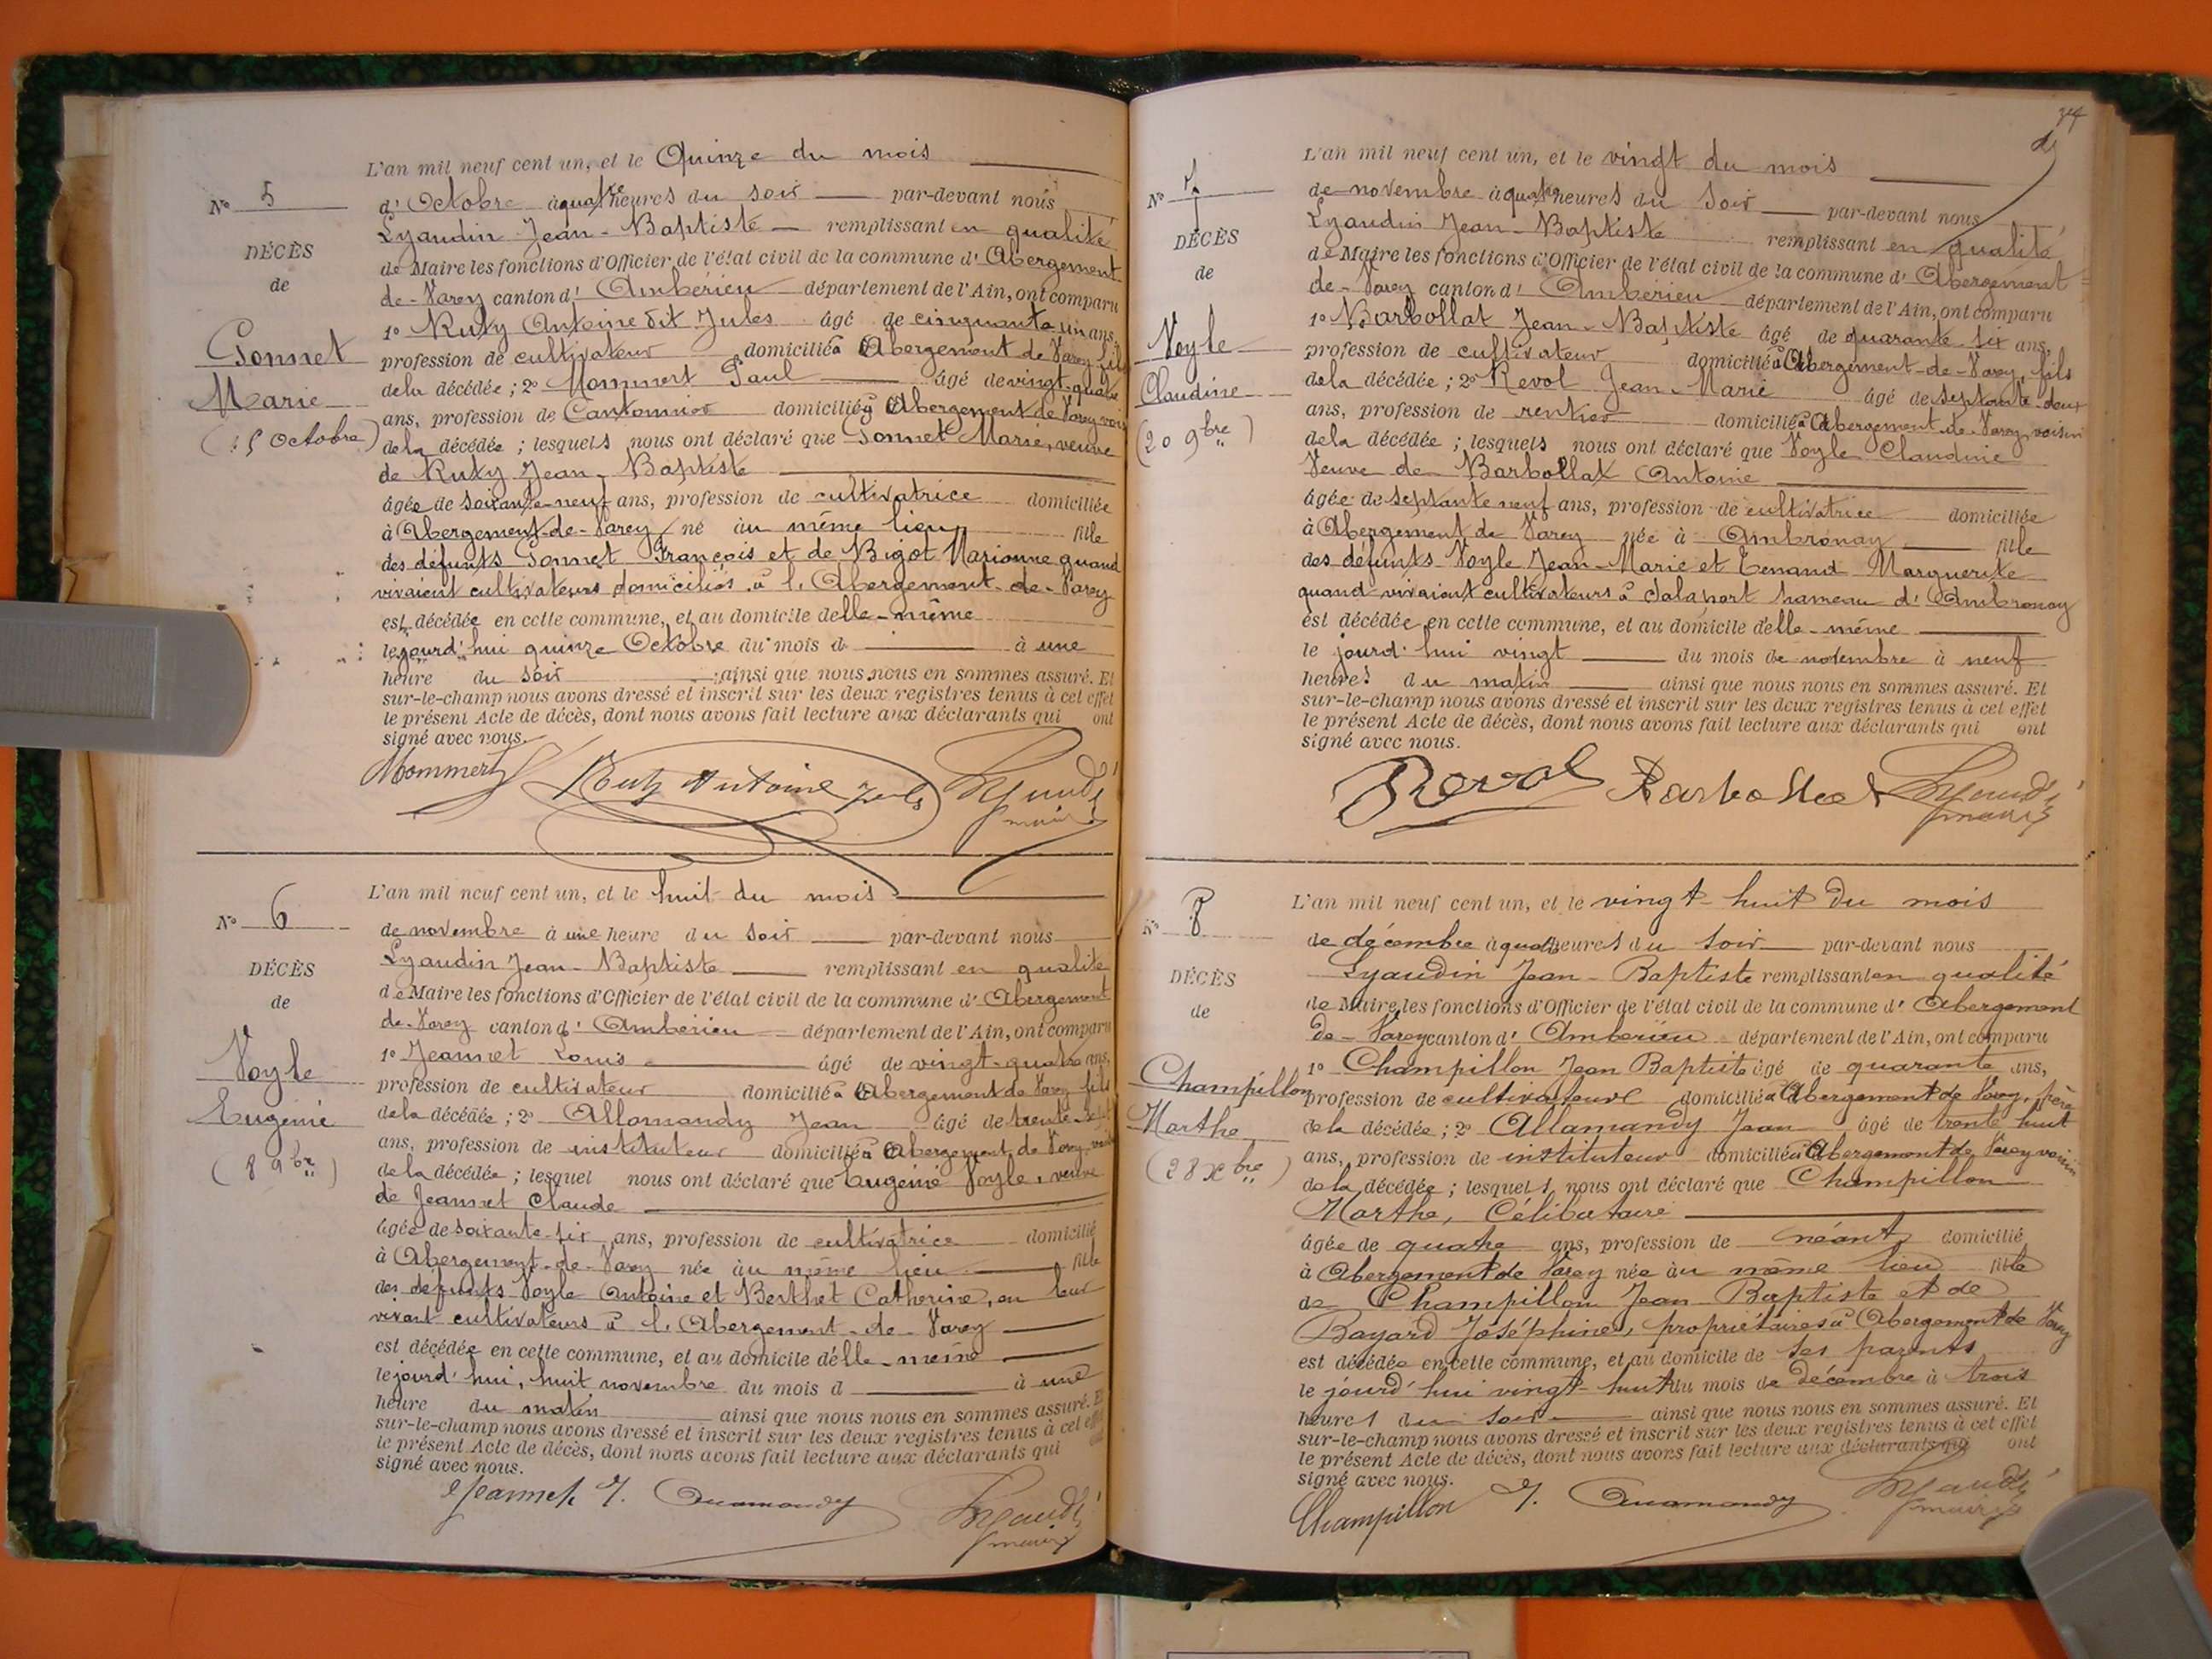 L'an mil neuf cent un, et le Quinze du mois
N° 5
d'Octobre à quatre heures du soir par-devant nous
Lyaudin Jean-Baptiste remplissant en qualité
DÉCÈS
de Maire les fonctions d'Officier de l'état civil de la commune d'Abergement
de
de-Varey canton d'Ambérieu département de l'Ain, ont comparu
1° Ruty Antoine dit Jules âgé de cinquante un ans,
Gonnet
profession de cultivateur domicilié à Abergement de Varey fils
de la décédée ; 2° Mommert Paul âgé de vingt-quatre
Marie
ans, profession de Cantonnier domicilié à Abergement de Varey voisin
(15 Octobre)
de la décédée ; lesquels nous ont déclaré que Gonnet Marie, veuve
de Ruty Jean-Baptiste
âgée de soixante-neuf ans, profession de cultivatrice domiciliée
à Abergement-de-Varey né au même lieu fille
des défunts Gonnet François et de Bigot Marionne quand
vivaient cultivateurs domiciliés à l'Abergement-de-Varey
est décédée en cette commune, et au domicile d'elle-même
le jourd'hui quinze Octobre du mois d à une
heure du soir ainsi que nous nous en sommes assuré. Et
sur-le-champ nous avons dressé et inscrit sur les deux registres tenus à cet effet
le présent Acte de décès, dont nous avons fait lecture aux déclarants qui ont
signé avec nous.
Mommert Ruty Antoine Jules Lyaudin
maire
L'an mil neuf cent un, et le huit du mois
N° 6
de novembre à une heure du soir par-devant nous
Lyaudin Jean-Baptiste remplissant en qualité
DÉCÈS
de Maire les fonctions d'Officier de l'état civil de la commune d'Abergement
de
de-Varey canton d'Ambérieu département de l'Ain, ont comparu
1° Jeannet Louis âgé de vingt-quatre ans,
Voyle
profession de cultivateur domicilié à Abergement de Varey fils
Eugénie
de la décédée ; 2° Allomandy Jean âgé de trente-
ans, profession de instituteur domicilié à Abergement de Varey voisin
(8 9bre)
de la décédée ; lesquel nous ont déclaré que Eugénie Voyle, veuve
de Jeannet Claude
âgée de soixante-six ans, profession de cultivatrice domicilié
à Abergement-de-Varey née au même lieu fille
des défunts Voyle Antoine et Berthet Catherine, en leur
vivant cultivateurs à l'Abergement-de-Varey
est décédée en cette commune, et au domicile d'elle-même
le jourd'hui, huit novembre du mois d à une
heure du matin ainsi que nous nous en sommes assuré. Et
sur-le-champ nous avons dressé et inscrit sur les deux registres tenus à cet effet
le présent Acte de décès, dont nous avons fait lecture aux déclarants qui ont
signé avec nous.
Jeannet J. Allamandy Lyaudin
maire
L'an mil neuf cent un, et le vingt du mois
N° 7
de novembre à quatre heures du soir par-devant nous
Lyaudin Jean-Baptiste remplissant en qualité
DÉCÈS
de Maire les fonctions d'Officier de l'état civil de la commune d'Abergement
de
de-Varey canton d'Ambérieu département de l'Ain, ont comparu
1° Barbollat Jean-Baptiste âgé de quarante six ans,
Voyle
profession de cultivateur domicilié à Abergement-de-Varey, fils
Claudine
de la décédée ; 2° Revol Jean-Marie âgé de septante-deux
ans, profession de rentier domicilié à Abergement-de-Varey, voisin
(20 9bre)
de la décédée ; lesquels nous ont déclaré que Voyle Claudine
Veuve de Barbollat Antoine
âgée de septante neuf ans, profession de cultivatrice domiciliée
à Abergement de Varey née à Ambronay fille
des défunts Voyle Jean-Marie et Tenand Marguerite
quand vivaient cultivateurs à Salaport hameau d'Ambronay
est décédée en cette commune, et au domicile d'elle-même
le jourd'hui vingt du mois de novembre à neuf
heures du matin ainsi que nous nous en sommes assuré. Et
sur-le-champ nous avons dressé et inscrit sur les deux registres tenus à cet effet
le présent Acte de décès, dont nous avons fait lecture aux déclarants qui ont
signé avec nous.
Revol Barbollat Lyaudin
maire
L'an mil neuf cent un, et le vingt-huit du mois
N° 8
de décembre à quatre heures du soir par-devant nous
Lyaudin Jean-Baptiste remplissant en qualité
DÉCÈS
de Maire les fonctions d'Officier de l'état civil de la commune d'Abergement
de
de-Varey canton d'Ambérieu département de l'Ain, ont comparu
1° Champillon Jean Baptiste âgé de quarante ans,
Champillon
profession de cultivateur domicilié à Abergement de Varey, père
Marthe
de la décédée ; 2° Allamandy Jean âgé de trente huit
ans, profession de instituteur domicilié à Abergement de Varey voisin
(28 Xbre)
de la décédée ; lesquels nous ont déclaré que Champillon
Marthe, Célibataire
âgée de quatre ans, profession de néant domicilié
à Abergement de Varey née au même lieu fille
de Champillon Jean-Baptiste et de
Bayard Joséphine, propriétaires à Abergement de Varey
est décédée en cette commune, et au domicile de ses parents
le jourd'hui vingt-huit du mois de décembre à trois
heures du soir ainsi que nous nous en sommes assuré. Et
sur-le-champ nous avons dressé et inscrit sur les deux registres tenus à cet effet
le présent Acte de décès, dont nous avons fait lecture aux déclarants qui ont
signé avec nous.
Champillon J. Allamandy Lyaudin
maire